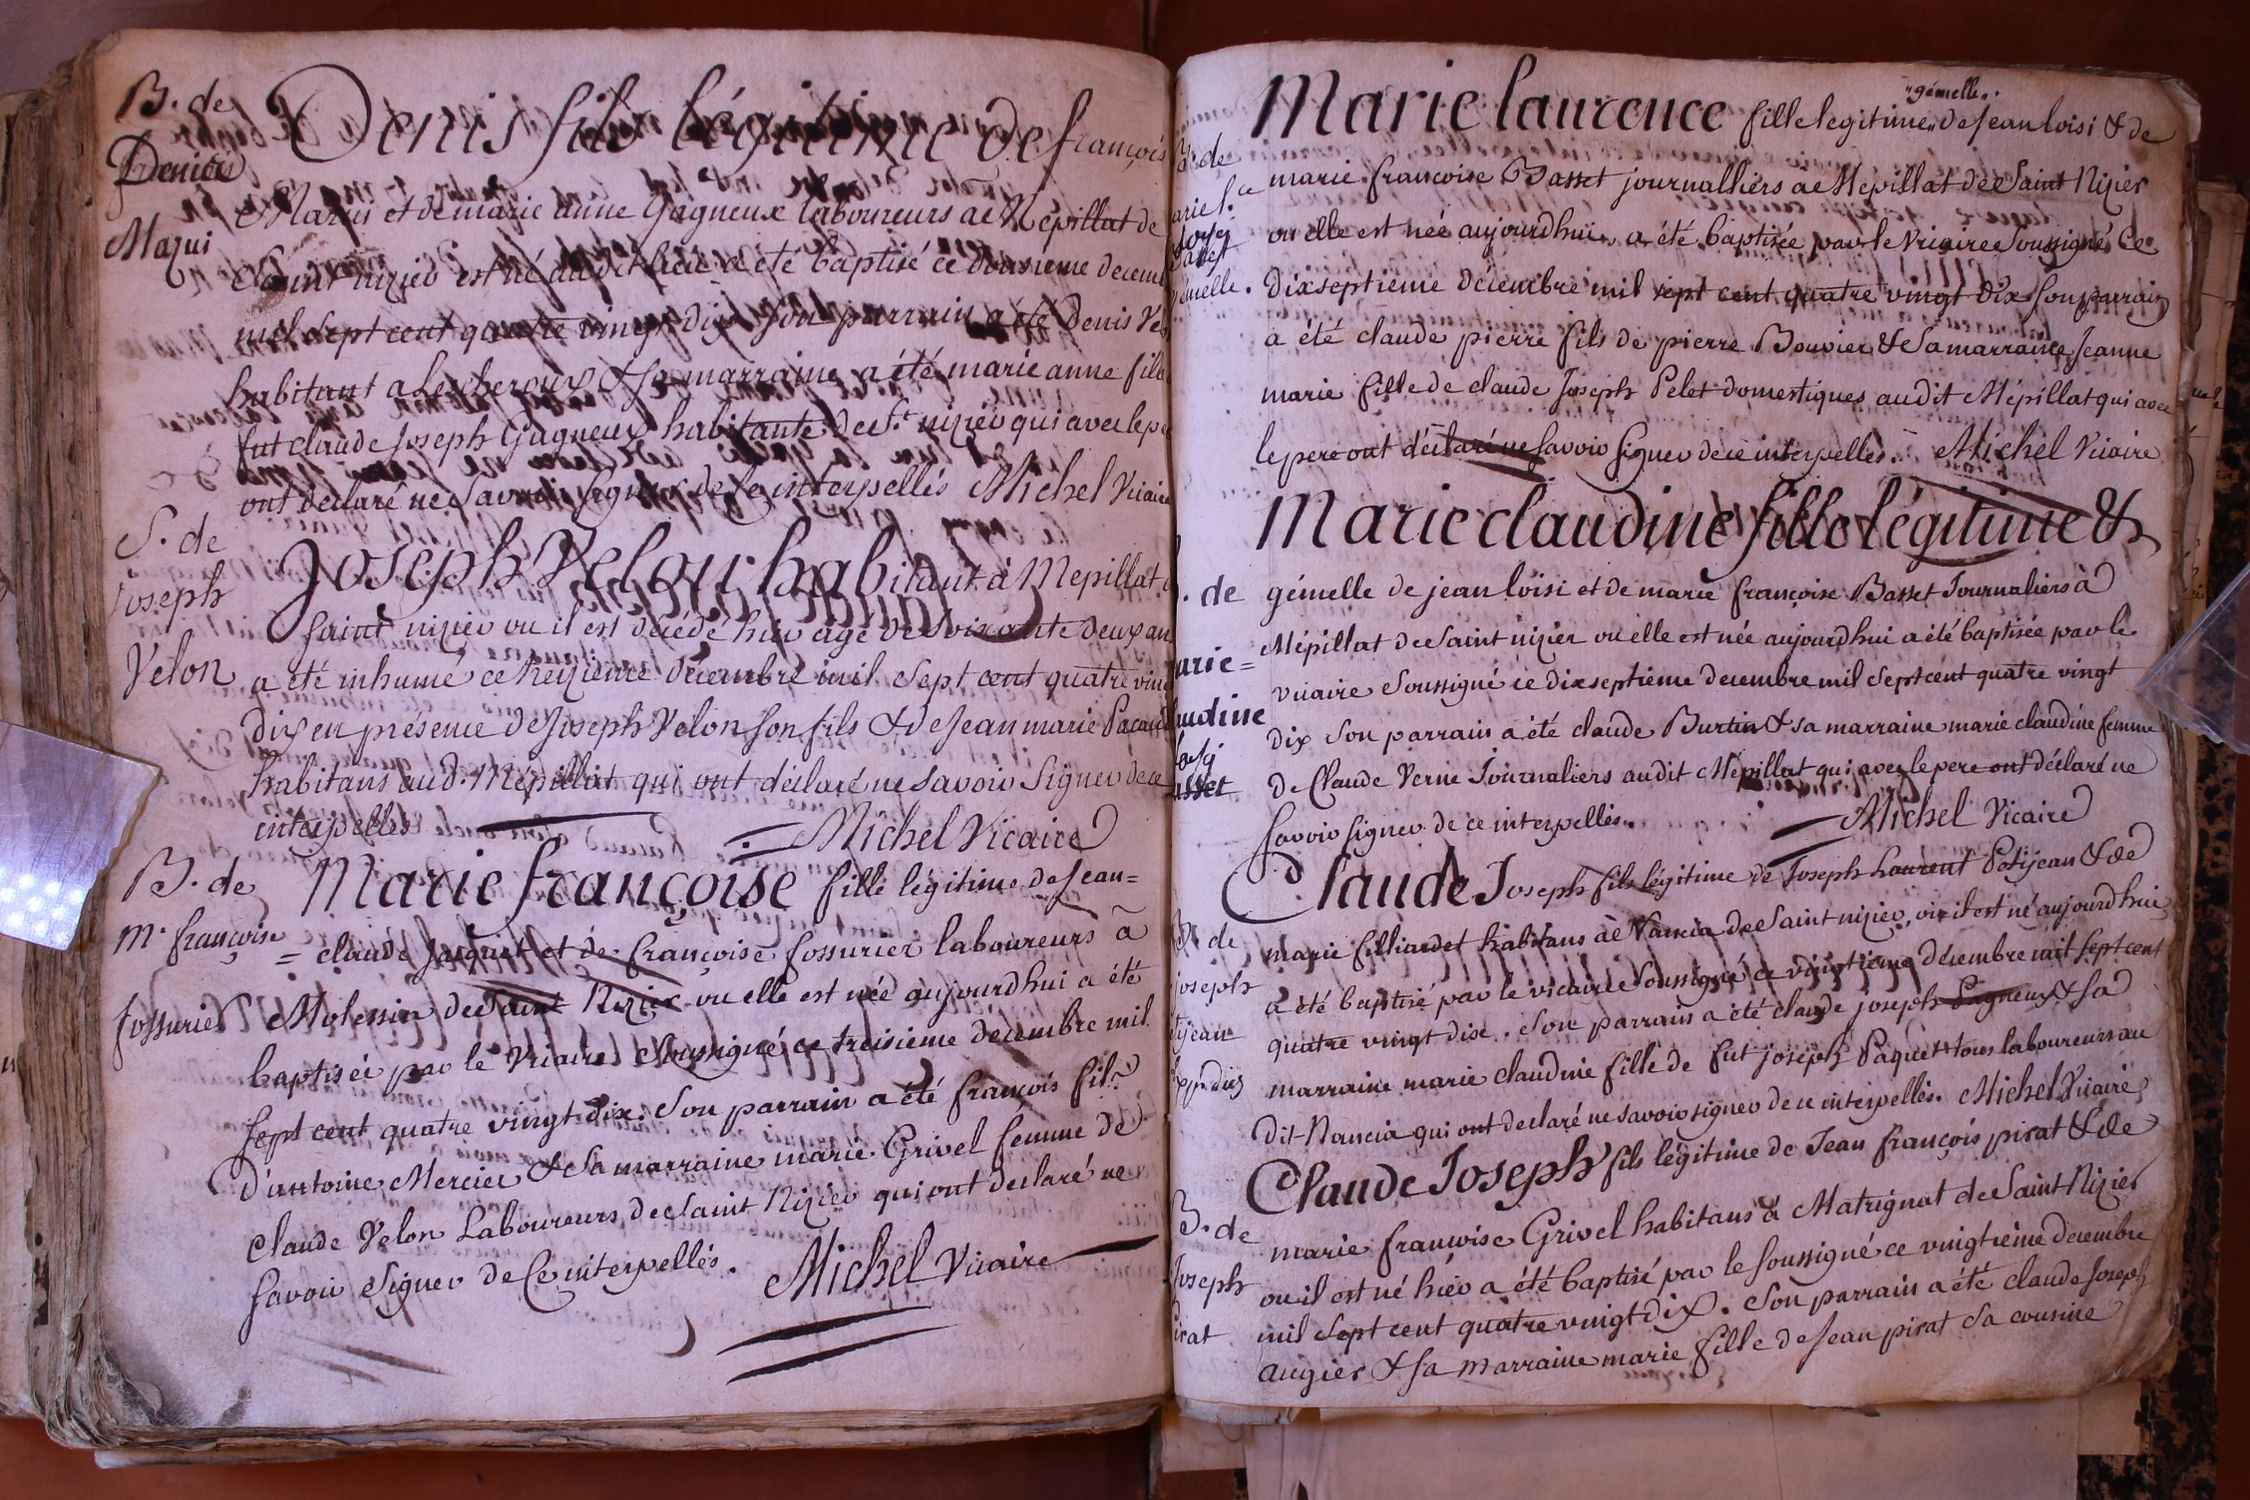 B. de
Denis
Maqui
Denis fils légitime de françois
Maquis et de marie anne Gagneux laboureurs a Mépillat de
Saint nizier est né audit lieu a été baptisé ce douzieme decem
mil sept cent quatre vingt dix son parrain a été Denis Ve
habitant a Lescheroux & sa marraine a été marie anne fille
fut claude Joseph Gagneux habitante de St. nizier qui avec le pe
ont declaré ne Savoir Signer de ce interpellés Michel Vicaire
S. de
Joseph
Velon
Joseph Velon habitant à Mepillat
Saint nizier ou il est décédé hier agé de soixante deux an
a été inhumé ce treizieme décembre mil sept cent quatre ving
dix en présence de Joseph Velon son fils & de Jean marie Pacaud
habitans aud. Mepillat qui ont déclaré ne savoir Signer de ce
interpellés Michel Vicaire
B. de
M. françoise
fossurier
Marie françoise fille légitime de Jean=
= claude Jacquet et de françoise fossurier laboureurs à
Molessin de Saint Nizier ou elle est née aujourdhui a été
baptiséé par le Vicaire Soussigné ce treisieme decembre mil
sept cent quatre vingt dix. Son parrain a été françois fils
d'antoine Mercier & Sa marraine marie Grivel femme de
Claude Velon Laboureurs de Saint Nizier qui ont declaré ne
savoir Signer de Ce interpellés. Michel Vicaire
B. de
arie l.ce
loisi
Basset
gémelle.
Marie laurence fille legitime "gémelle" de Jean loisi & de
marie françoise Basset journalliers a Mépillat de Saint Nizier
ou elle est née aujourdhui a été baptisée par le Vicaire Soussigné Ce
dixseptieme décembre mil sept cent quatre vingt dix son parrain
a été claude pierre fils de pierre Bouvier & Sa marraine Jeanne
marie fille de claude Joseph Pelet domestiques audit Mépillat qui avec
le pere ont déclaré ne Savoir Signer de ce interpellés. Michel Vicaire
. de
arie=
audine
loisi
asset
Marie claudine fille légitime &
gémelle de jean loisi et de marie françoise Basset Journaliers à
Mépillat de Saint nizier ou elle est née aujourdhui a été baptisée par le
vicaire Soussigné ce dixseptieme decembre mil sept cent quatre vingt
dix Son parrain a été claude Burtin & sa marraine marie claudine femme
de Claude Verne Journaliers audit Mépillat qui avec le pere ont déclaré ne
Savoir signer de ce interpellés. Michel Vicaire
B. de
joseph
tijean
Claude Joseph fils légitime de Joseph Laurent Petijean & de
marie filliardet habitans a Nancia de Saint nizier, ou il est né aujourdhui
a été baptisé par le vicaire Soussigné ce vingtieme décembre mil sept cent
quatre vingt dix. Son parrain a été claude joseph Gagneux & sa
marraine marie claudine fille de fut joseph Paquet tous laboureurs au
dit Nancia qui ont declaré ne savoir signer de ce interpellés. Michel Vicaire
B. de
Joseph
irat
Claude Joseph fils légitime de Jean françois pirat & de
marie françoise Grivel habitans à Matrignat de Saint Nizier
ou il est né hier a été baptisé par le Soussigné ce vingtieme decembre
mil sept cent quatre vingt dix. Son parrain a été claude Joseph
augier & sa marraine marie fille de Jean pirat sa cousine